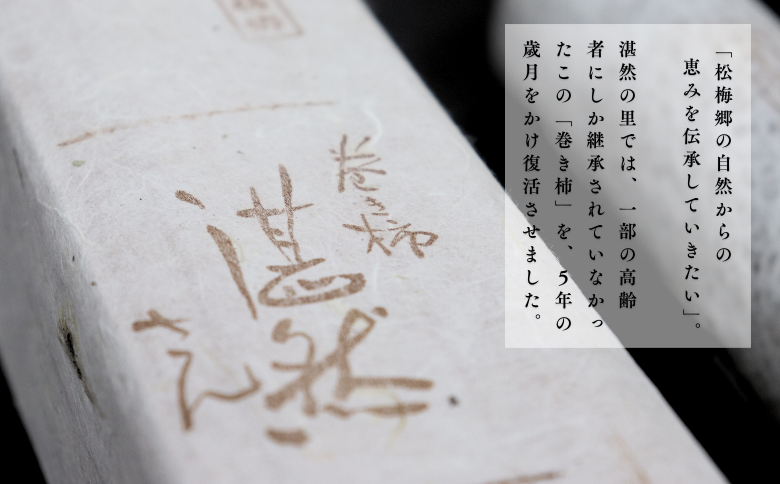 「松梅郷の自然からの
恵みを伝承していきたい」。
湛然の里では、一部の高齢
者にしか継承されていなかっ
たこの「巻き柿」を、5年の
歳月をかけ復活させました。
巻き柿
湛然